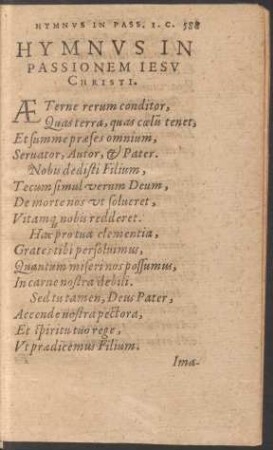 HYMNVS IN PASS. I. C. 588
HYMNVS IN
PASSIONEM IESV
CHRISTI.
ÆTerne rerum conditor,
Quas terra, quas cœlũ tenet,
Et summe præses omnium,
Seruator, Autor, & Pater.
Nobis dedisti Filium,
Tecum simul verum Deum,
De morte nos vt solueret,
Vitamq́ nobis redderet.
Hac pro tua clementia,
Grates tibi persoluimus,
Quantum miseri nos possumus,
In carne nostra debili.
Sed tu tamen, Deus Pater,
Accende nostra pectora,
Et spiritu tuo rege,
Vt prædicemus Filium.
Ima-